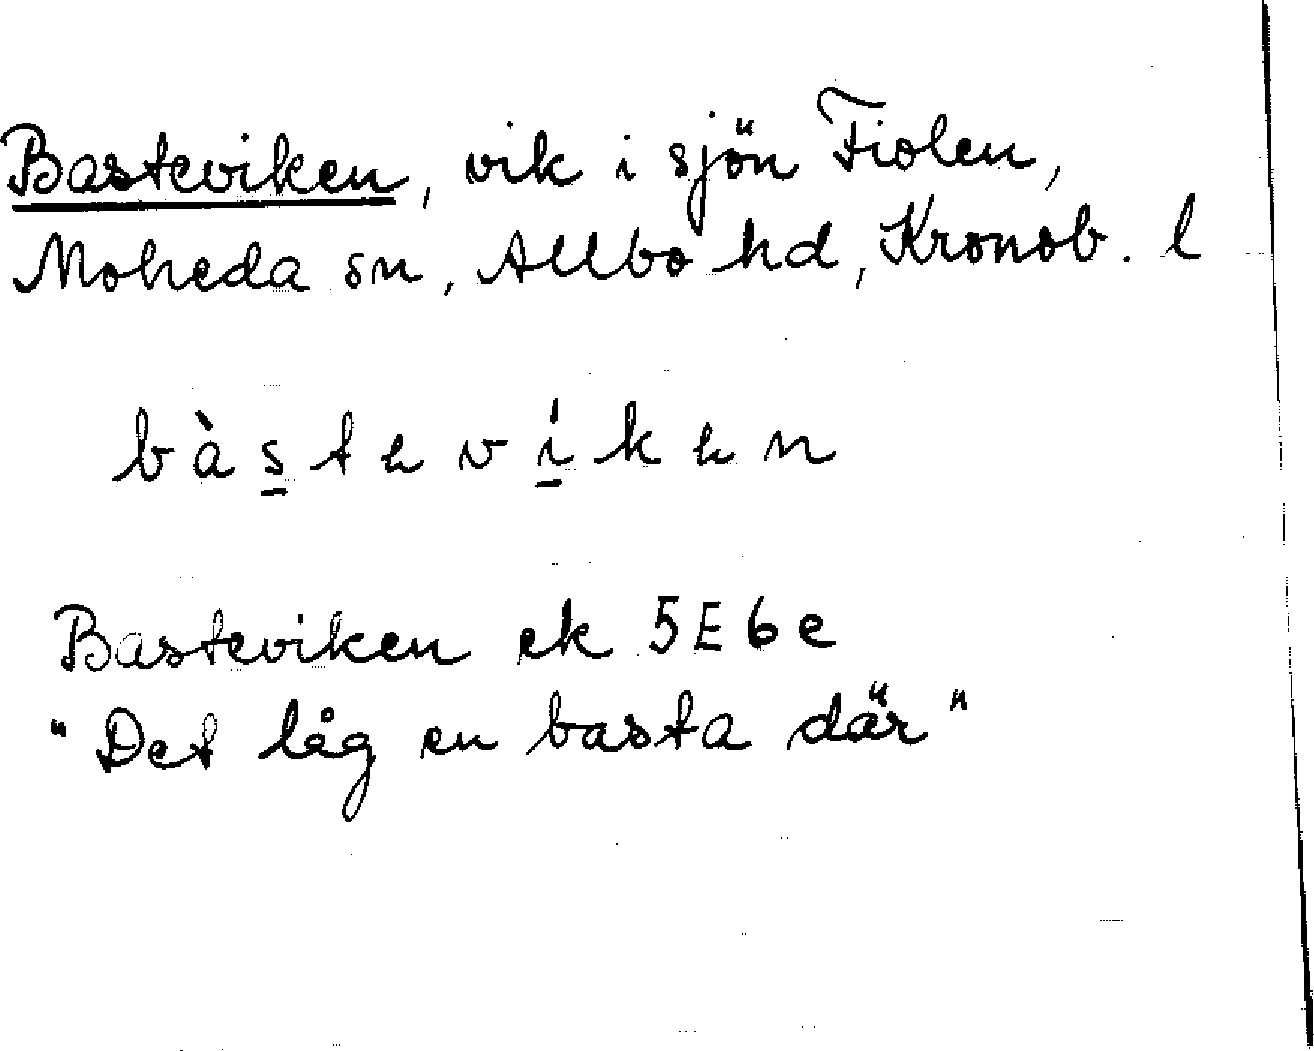 Basteviken, vik i sjön Fiolen,
Moheda sn, Allbo hd, Kronob. l
bàste̲víken
Basteviken ek 5E6e
"Det låg en basta där"